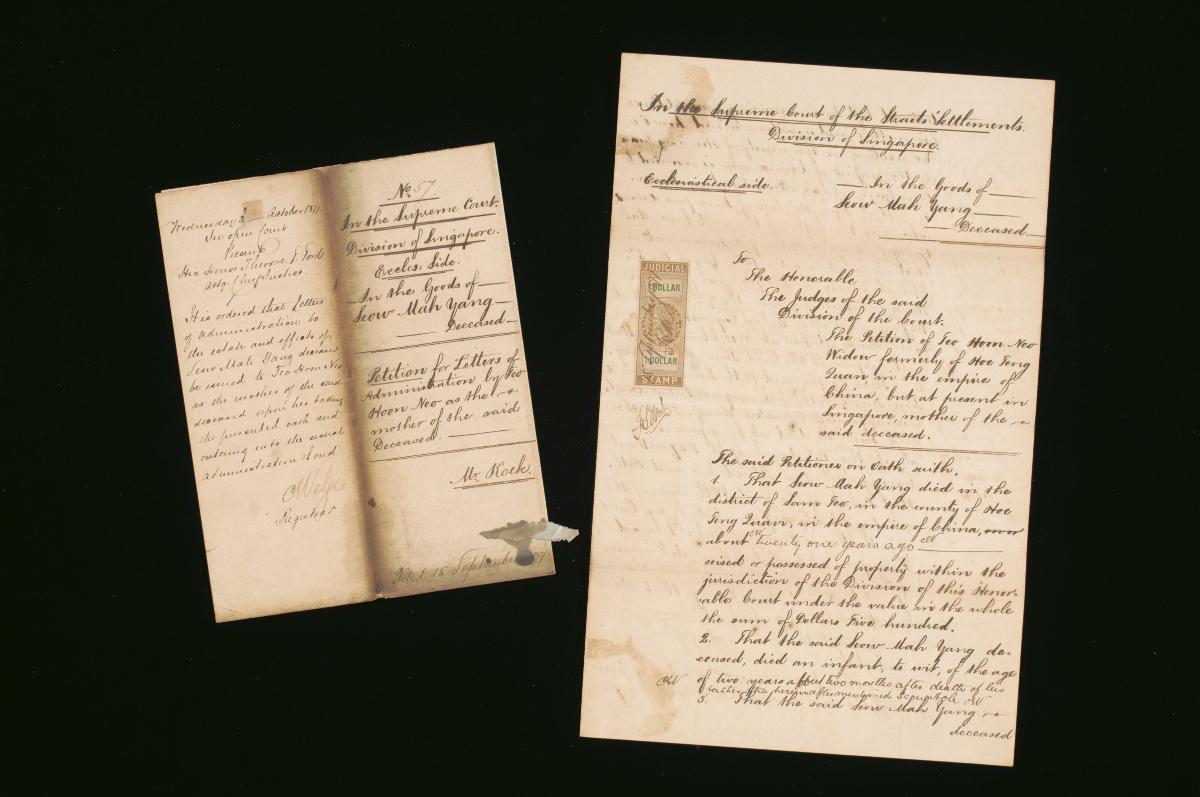 Wednesday October 187
In open Court
Present
His Honor Theodore T. Ford
actg. Chief Justice.
It is ordered that Letters
of Administration to
the estate and effects of
Seow Mah Yang deceased
be issued to Teo Hoon Neo
as the mother of the said
deceased upon her taking
the presented oath and
entering into the usual
administration bond
Registrar
No. 57.
In the Supreme Court.
Division of Singapore.
Eccles: Side.
In the Goods of
Seow Mah Yang
Deceased
Petition for Letters of
Administration by Teo
Hoon Neo as the
mother of the said
Deceased.
Mr. Koek.
Filed 15 September
In the Supreme Court of the Straits Settlements.
Division of Singapore.
Ecclesiastical side.
In the Goods of
Seow Mah Yang
Deceased.
JUDICIAL
1 DOLLAR
1 DOLLAR
STAMP
To
The Honorable
The Judges of the said
Division of the Court.
The Petition of Teo Hoon Neo
Widow formerly of Hoe Teng
Quan, in the empire of
China, but at present in
Singapore, mother of the
said deceased.
The said Petitioner on Oath saith,
1 That Seow Mah Yang died in the
district of Sam Teo, in the county of Hoe
Teng Quan, in the empire of China, on or
about twenty one years ago
seised or possessed of property within the
jurisdiction of the Division of this Honor-
able Court under the value in the whole
the sum of Dollars Five hundred.
2. That the said Seow Mah Yang de-
ceased, died an infant, to wit, of the age
of two years about two months after death of his
father the hereinafter mentioned
3. That the said Seow Mah Yang
deceased